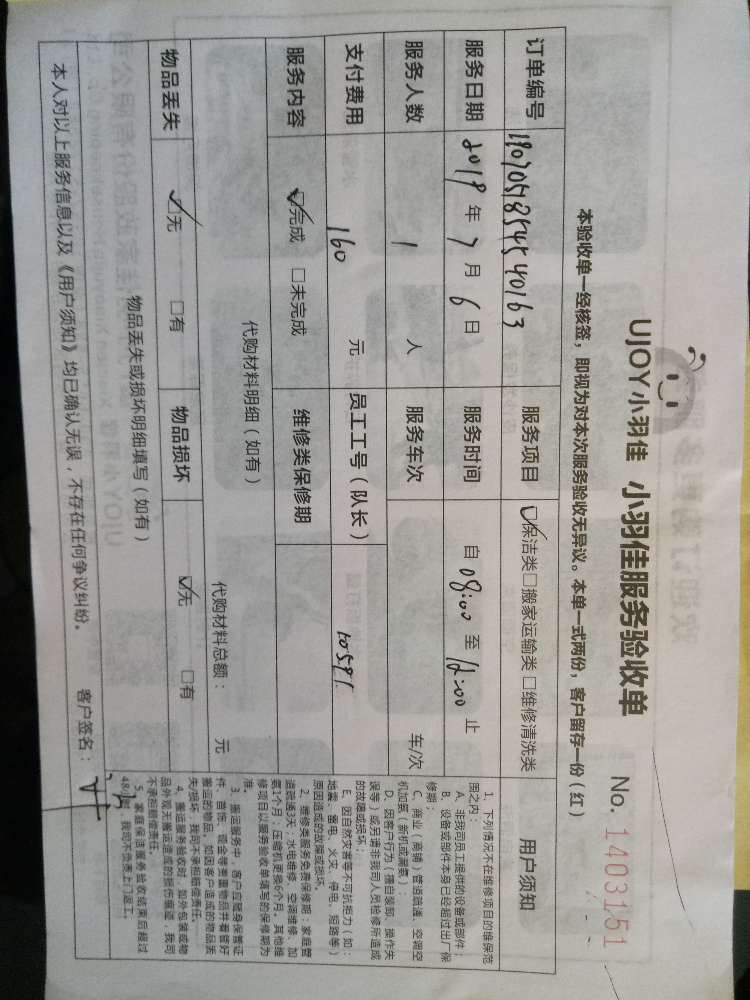 UJOY小羽佳 小羽佳服务验收单
No. 1403151
本验收单一经核签，即视为对本次服务验收无异议。本单一式两份，客户留存一份（红）
订单编号
服务项目 ☑保洁类□搬家运输类□维修清洗类
服务日期 2018年7月6日 服务时间 自08:00至12:00止
服务人数 1 人 服务车次 车/次
支付费用 160 元 员工工号（队长）
服务内容 ☑完成 □未完成 维修类保修期
代购材料明细（如有）
代购材料总额： 元
物品丢失 ☑无 □有 物品损坏 ☑无 □有
物品丢失或损坏明细填写（如有）
本人对以上服务信息以及《用户须知》均已确认无误，不存在任何争议纠纷。 客户签名：
用户须知
1、下列情况不在维修项目的维保范
围之内：
A、非我司员工提供的设备或部件；
B、设备或部件本身已经超过出厂保
修期；
C、商业（商铺）管道疏通、空调空
机加氟（新机或漏氟）；
D、因客户行为（擅自装卸、操作失
误等）或另请非我司人员检修所造成
的故障或损坏；
E、因自然灾害等不可抗拒力（如：
地震、雷电、火灾、停电、短路等）
原因造成的故障或损坏。
2、维修类服务免费保修期：家庭管
道疏通3天；水电维修、空调维修、加
氨1个月；压缩机更换6个月。其他维
修项目以服务验收单填写的保修期为
准。
3、搬运服务中，客户应随身保管证
件、首饰、现金等贵重物品并看管好
搬运的物品。如因客户造成的物品丢
失/损坏，我司不承担赔偿责任。
4、搬运服务验收时，如外包装或物
品外观无搬运造成的损伤痕迹，我司
不承担赔偿责任。
5、家庭保洁服务验收结束后超过
48小时，我司不负责上门返工。